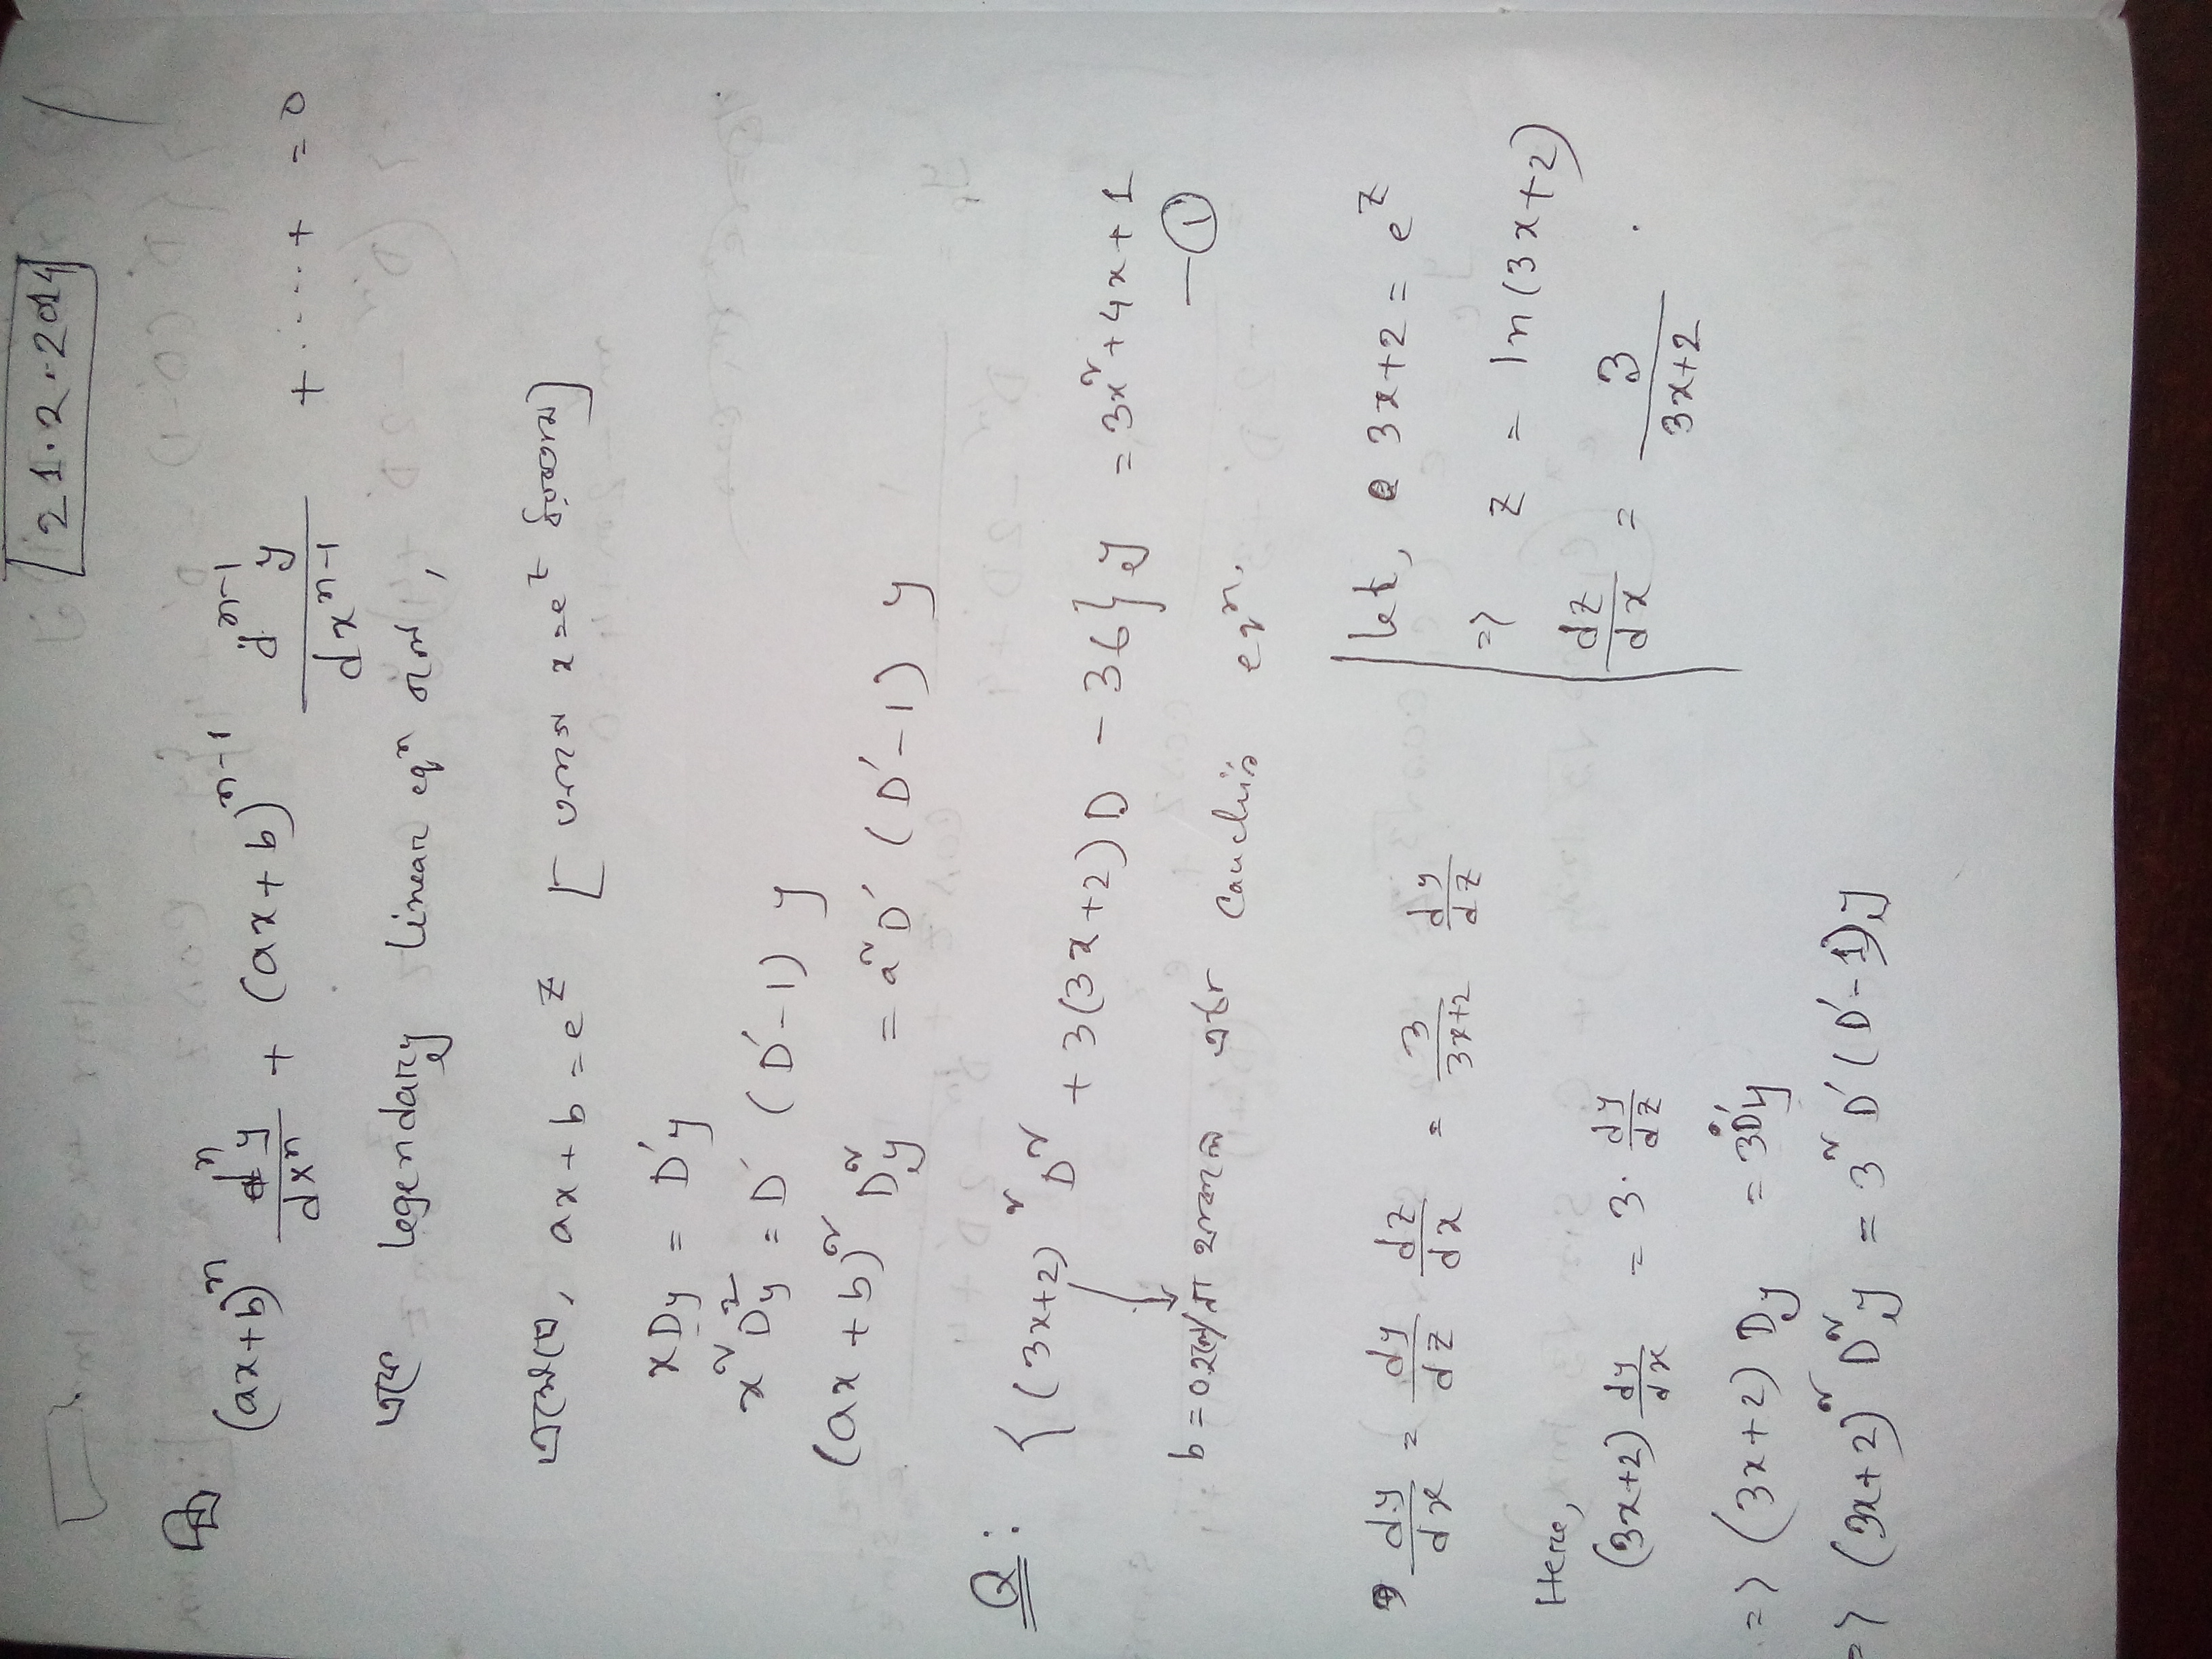 21.2.2014
(ax+b)ⁿ dⁿy/dxⁿ + (ax+b)ⁿ⁻¹ dⁿ⁻¹y/dxⁿ⁻¹ + ..... + = 0
একে legendary linear eqⁿ বলে,
এক্ষেত্রে, ax+b = e^z [ x=e^z ]
xDy = D'y
x²D²y = D'(D'-1)y
(ax+b)² D²y = a²D'(D'-1)y
Q: {(3x+2)² D² + 3(3x+2)D - 36}y = 3x²+4x+1 —①
b=0 eqⁿ.
let, 3x+2 = e^z
=> z = ln(3x+2)
dz/dx = 3/(3x+2)
dy/dx = dy/dz dz/dx = 3/(3x+2) dy/dz
Here,
(3x+2) dy/dx = 3. dy/dz
=> (3x+2)Dy = 3D'y
=> (3x+2)² D²y = 3²D'(D'-1)y